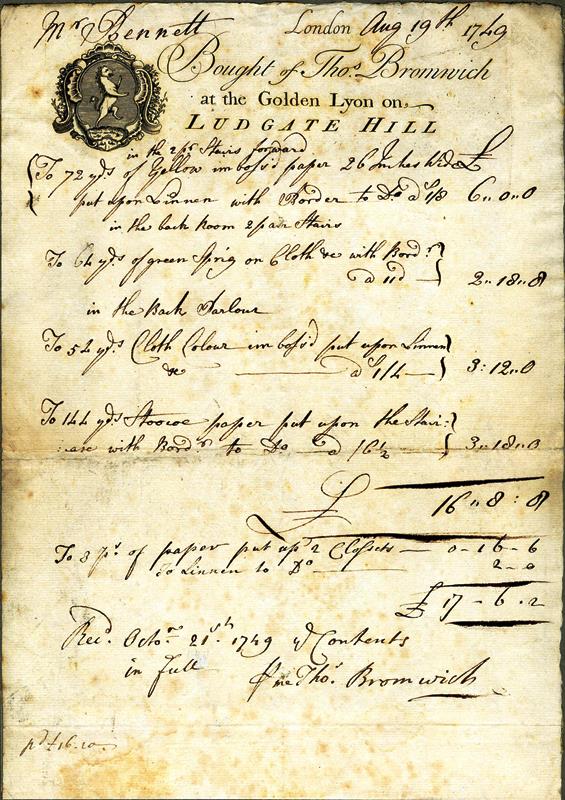 Mr Bennett London Aug 19th 1749
Bought of Thos. Bromwich
at the Golden Lyon on
LUDGATE HILL
in the 2 pr Stairs forward
To 72 yds of Yellow imboss'd paper 26 Inches Wide £
put upon Linnen with Border to Do a 1/8 6 " 0 " 0
in the back Room 2 pair Stairs
To 64 yds of green Sprig on Cloth &c with Bord:
a 11d 2 " 18 " 8
in the Back Parlour
To 54 yds Cloth Colour imboss'd put upon Linnen
&c a 1/4 3 : 12 " 0
To 144 yds Stocoe paper put upon the Stair:
:case with Bordr to Do a 16½ 3 " 18 " 0
£ 16 " 8 : 8
To 3 Ps. of paper put up 2 Clossets 0 - 16 - 6
To Linnen to Do 2 - 0
£ 17 - 6 . 2
Recd. Octor 21st 1749 ye Contents
in full
Thos. Bromwich
pd £16-10